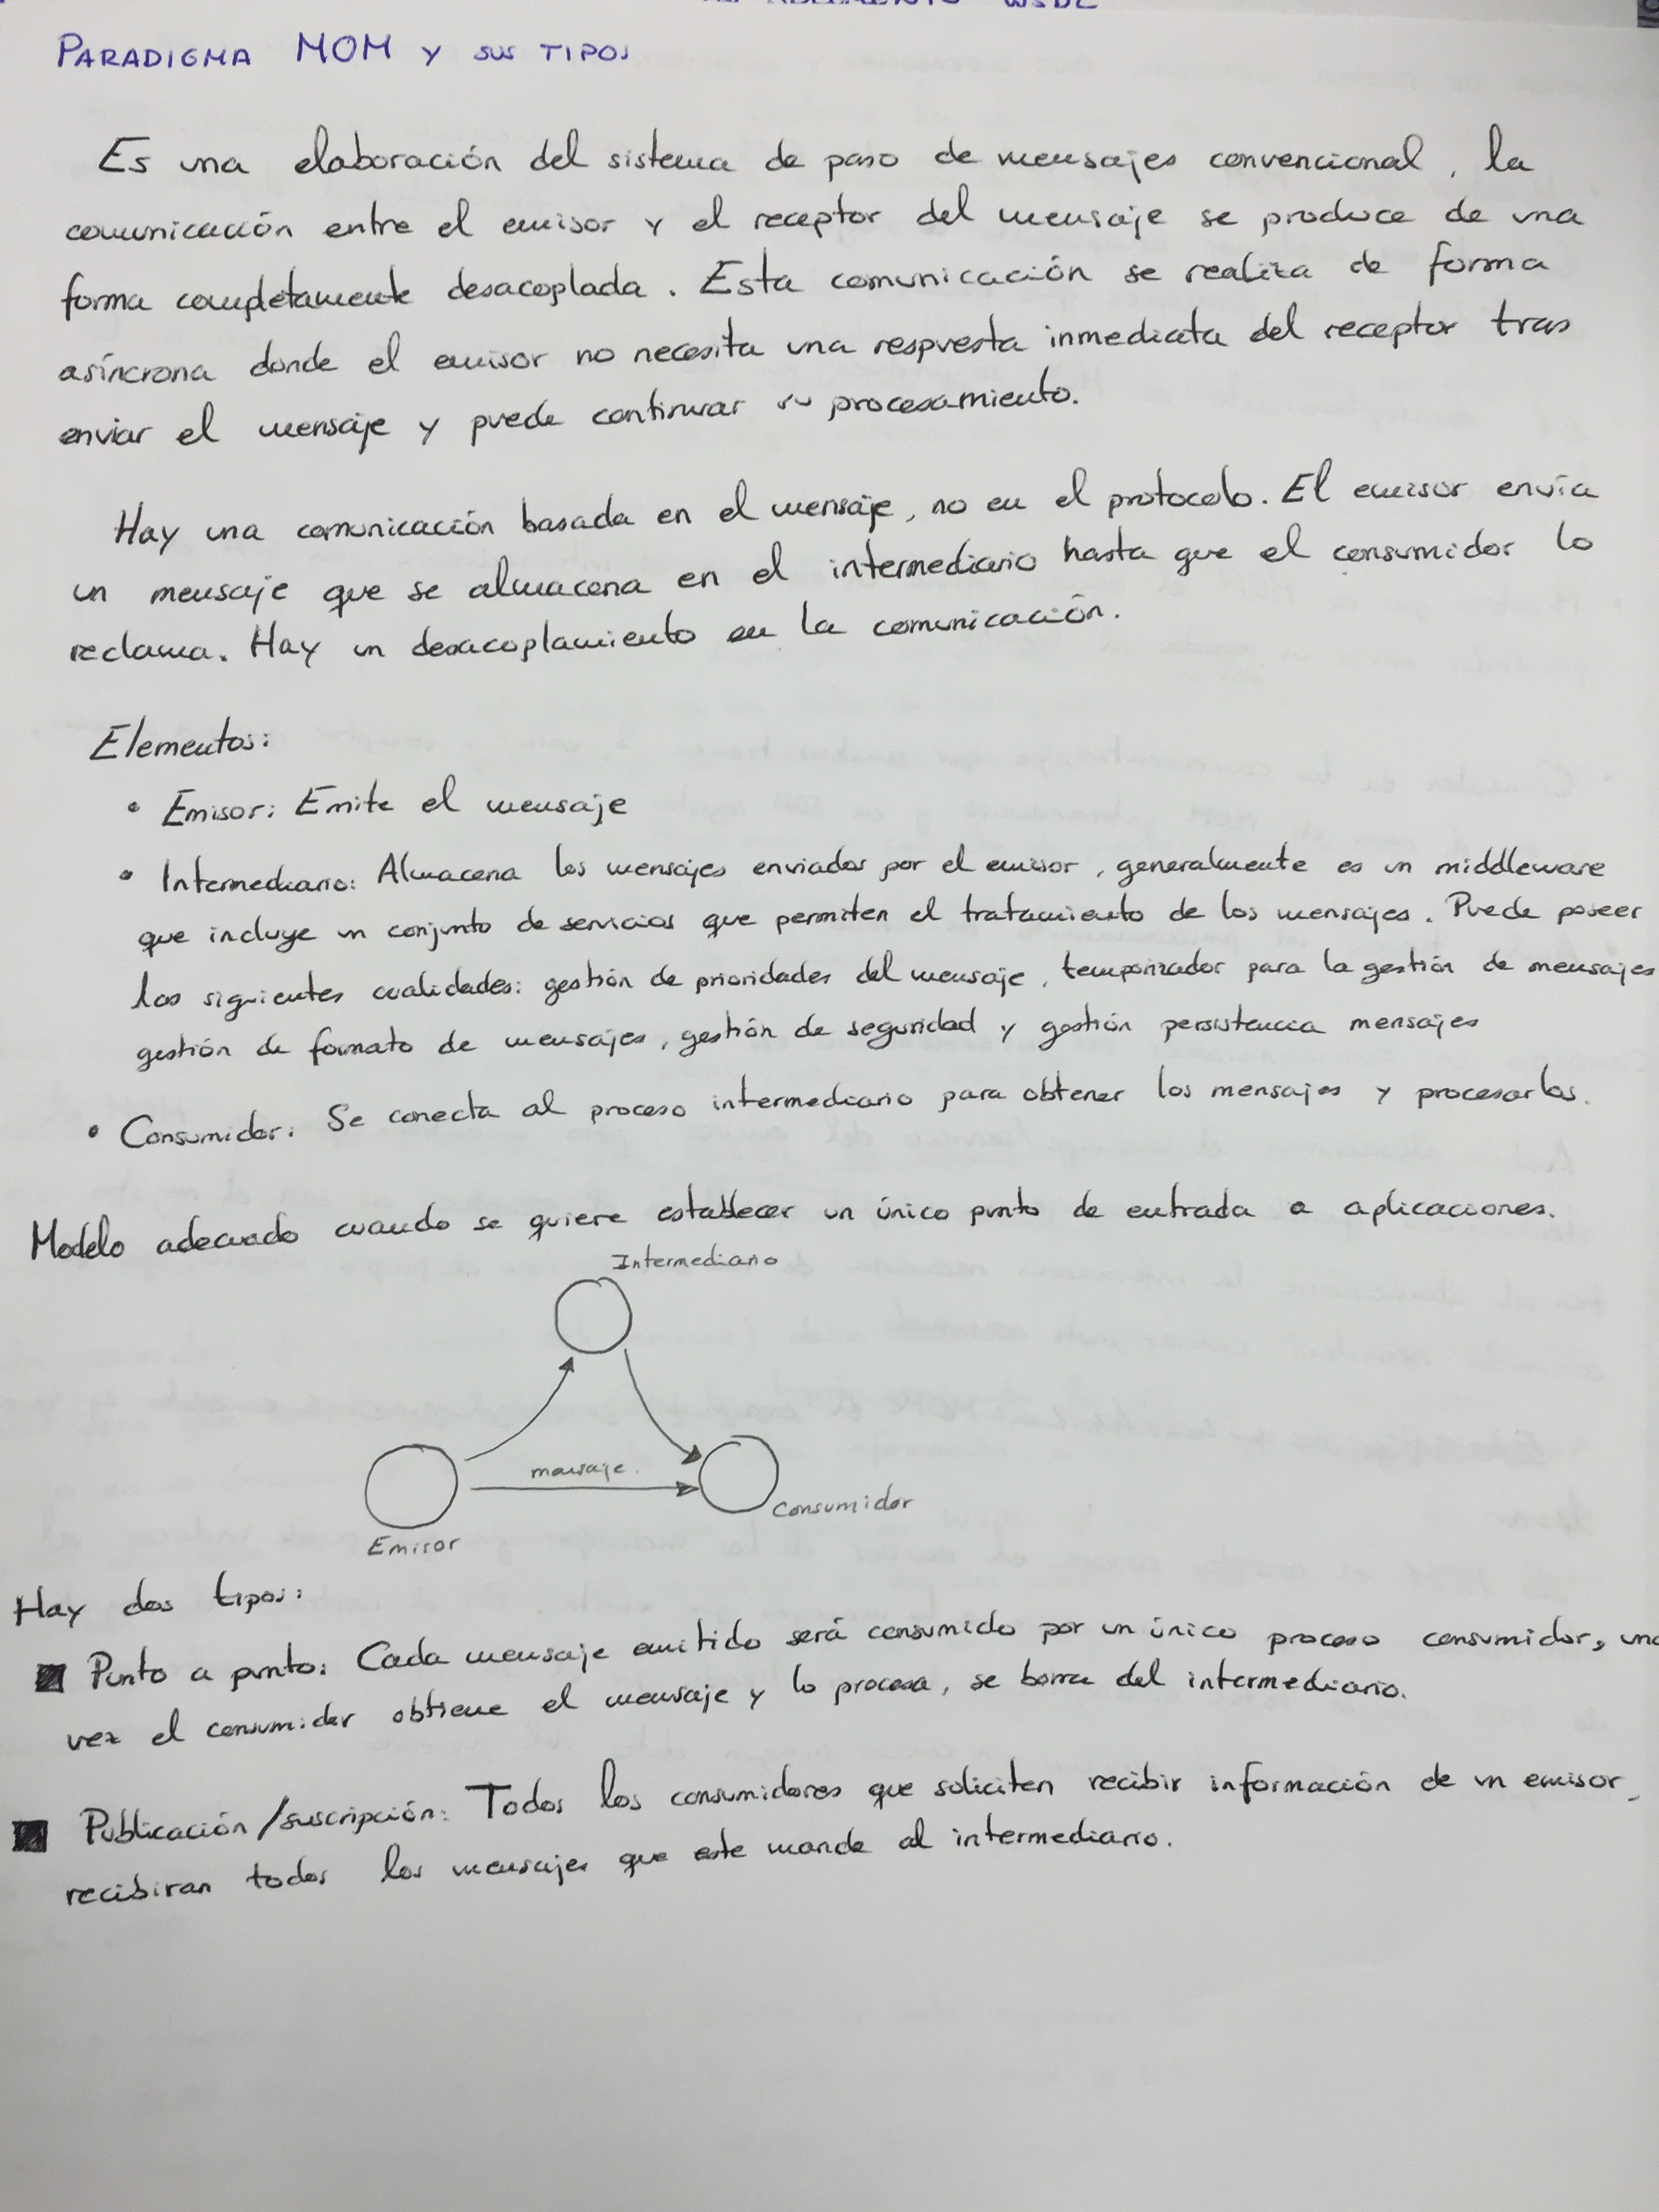 WSDL
PARADIGMA MOM Y SUS TIPOS
Es una elaboración del sistema de paso de mensajes convencional, la
comunicación entre el emisor y el receptor del mensaje se produce de una
forma completamente desacoplada. Esta comunicación se realiza de forma
asíncrona donde el emisor no necesita una respuesta inmediata del receptor tras
enviar el mensaje y puede continuar su procesamiento.
Hay una comunicación basada en el mensaje, no en el protocolo. El emisor envía
un mensaje que se almacena en el intermediario hasta que el consumidor lo
reclama. Hay un desacoplamiento en la comunicación.
Elementos:
• Emisor: Emite el mensaje
• Intermediario: Almacena los mensajes enviados por el emisor, generalmente es un middleware
que incluye un conjunto de servicios que permiten el tratamiento de los mensajes. Puede poseer
las siguientes cualidades: gestión de prioridades del mensaje, temporizador para la gestión de mensajes
gestión de formato de mensajes, gestión de seguridad y gestión persistencia mensajes
• Consumidor: Se conecta al proceso intermediario para obtener los mensajes y procesarlos.
Modelo adecuado cuando se quiere establecer un único punto de entrada a aplicaciones.
Intermediario
mensaje.
Consumidor
Emisor
Hay dos tipos:
Punto a punto: Cada mensaje emitido será consumido por un único proceso consumidor, una
vez el consumidor obtiene el mensaje y lo procesa, se borra del intermediario.
Publicación/suscripción: Todos los consumidores que soliciten recibir información de un emisor,
recibiran todos los mensajes que este mande al intermediario.